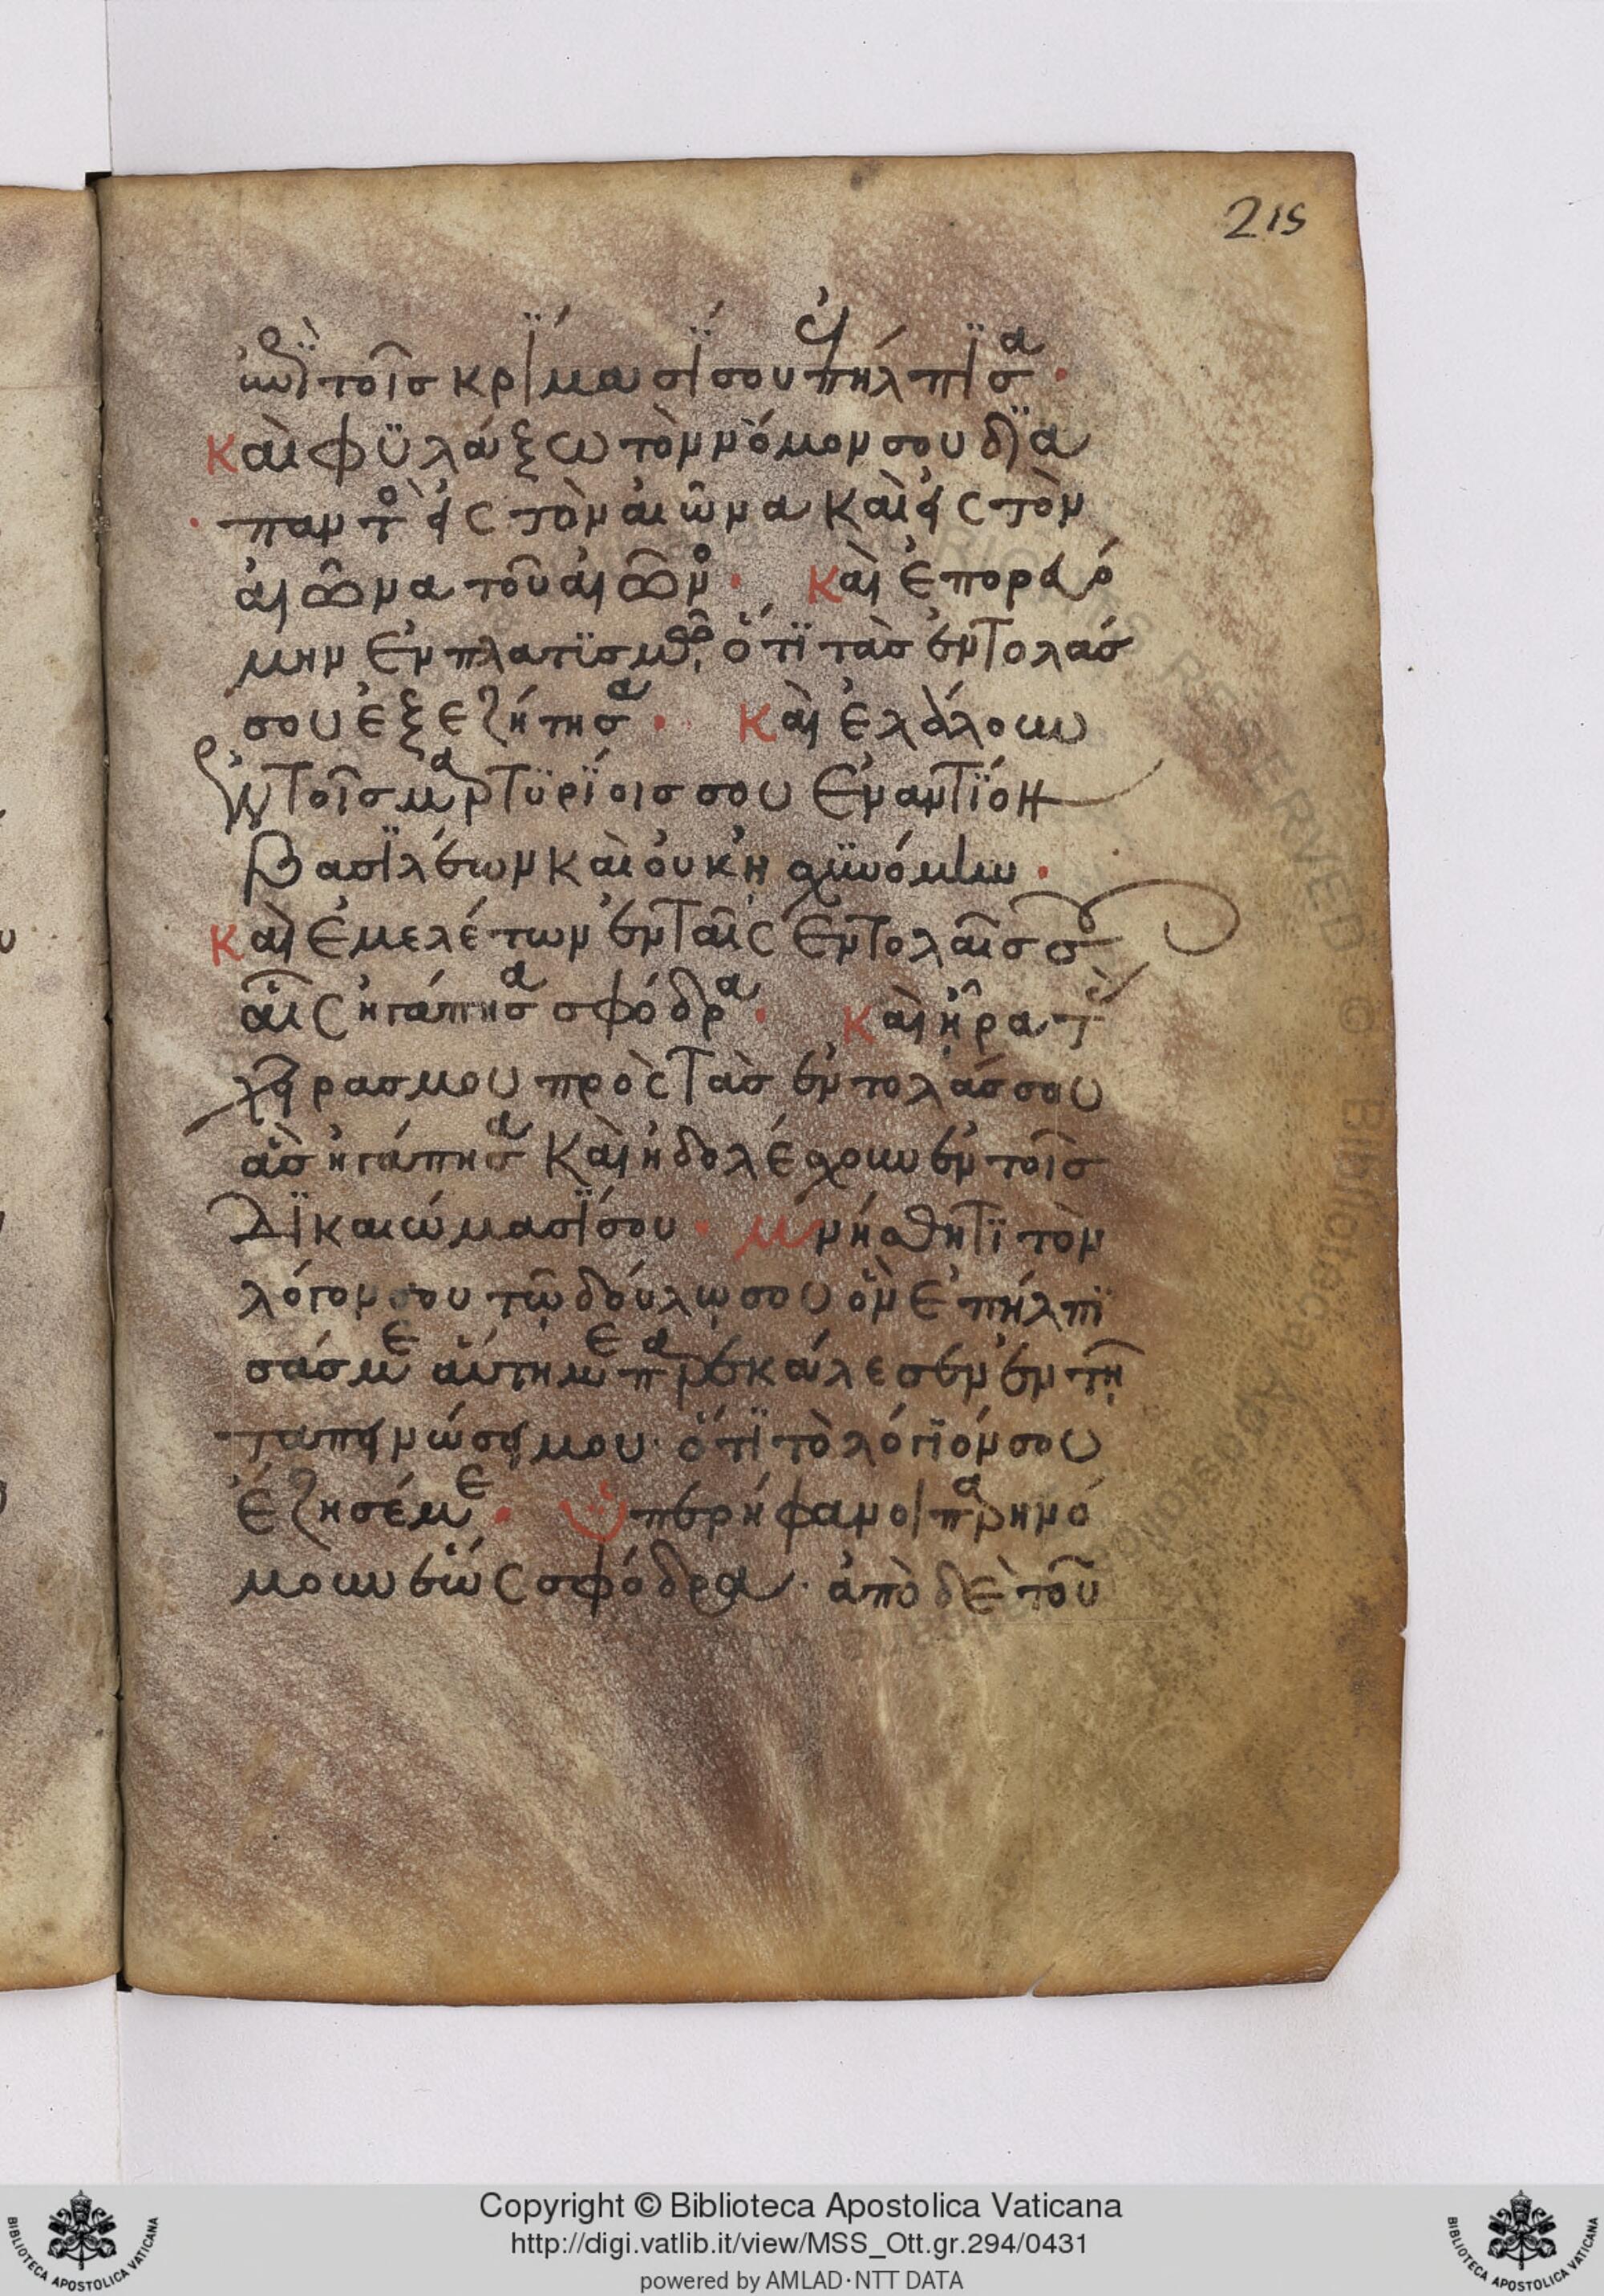 215
ὅτι τοῖσ κρίμασί σου ἐπήλπισα·
Καὶ φϋλάξω τὸν νόμον σου δϊα
παντὸς· εἰς τὸν αἰῶνα καὶ εἰς τὸν
αἰῶνα τοῦ αἰῶνος· Καὶ ἐπορευό
μην ἐν πλατϊσμῶ, ὅτϊ τὰσ ἐντολάσ
σου ἐξεζήτησα· Καὶ ἐλάλουν
ἐν τοῖσ μαρτϋρίοισ σου ἐναντϊόν
Βασϊλέων καὶ οὐκ ἠσχϋνόμην·
Καὶ ἐμελέτων ἐν ταῖς ἐντολαῖσ σου
αἷς ἠγάπησα σφόδρα· Καὶ ἦρα τὰς
χεῖρασ μου πρὸς τὰσ ἐντολάσ σου
ἃσ ἠγάπησα καὶ ἠδολέσχουν ἐν τοῖσ
Δϊκαιώμασί σου· Μνήσθητϊ τὸν
λόγον σου τῷ δούλῳ σου ὃν ἐπήλπϊ
σάσ με αὕτη με παρεκάλεσεν ἐν τῇ
ταπεινώσει μου· ὅτϊ τὸ λόγϊόν σου
ἔζησέ με· Ὑπερήφανοι παρηνό
μουν ἕως σφόδρα· ἀπὸ δὲ τοῦ
Copyright © Biblioteca Apostolica Vaticana
http://digi.vatlib.it/view/MSS_Ott.gr.294/0431
powered by AMLAD·NTT DATA
BIBLIOTECA APOSTOLICA VATICANA
BIBLIOTECA APOSTOLICA VATICANA